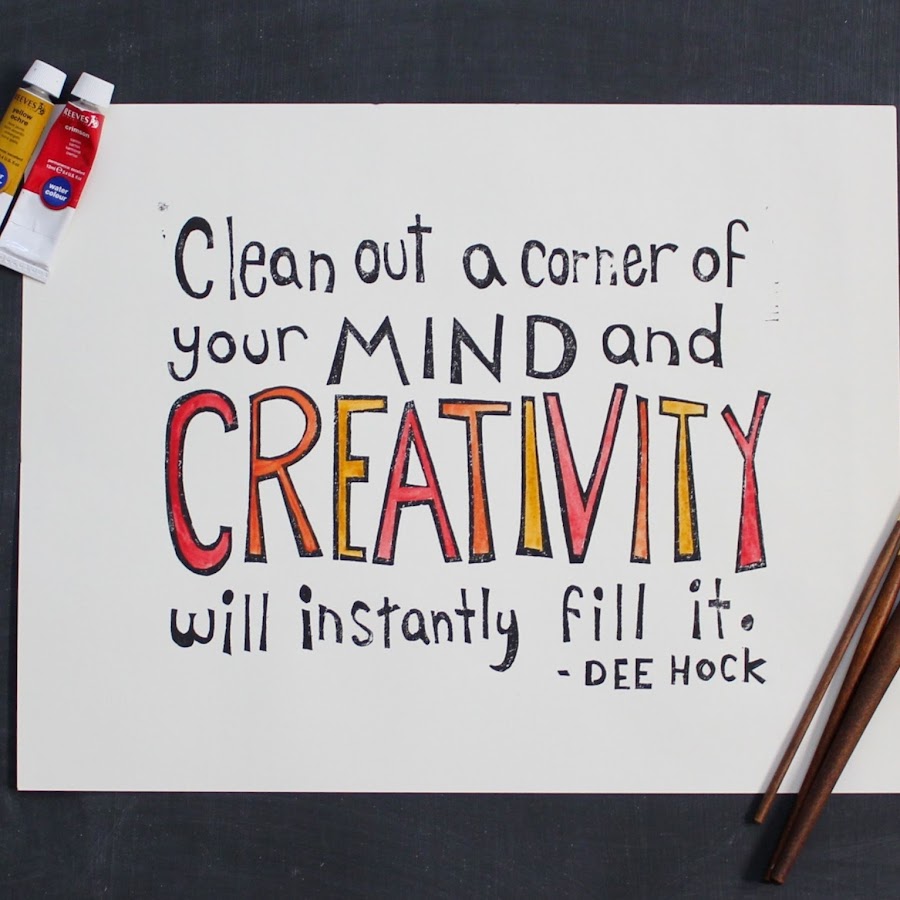 REEVES
yellow
ochre
REEVES
crimson
water
colour
Clean out a corner of
your MIND and
CREATIVITY
will instantly fill it.
- DEE HOCK